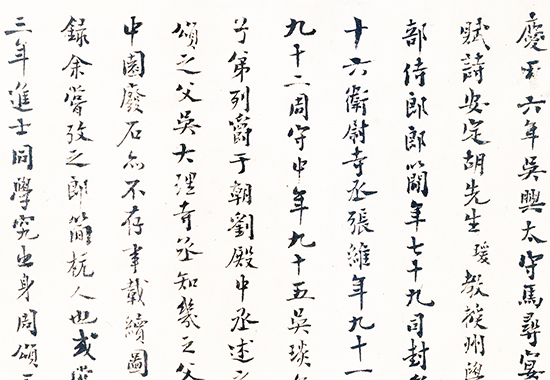 慶曆六年吳興太守馬尋宴
賦詩安定胡先生瑗教授州學
部侍郎郎簡年七十九司封
十六衛尉寺丞張維年九十一
九十二周守中年九十五吳琰
子弟列爵于朝劉殿中丞述之
頌之父吳大理寺丞知幾之父
中園廢石亦不存事載續圖
錄余嘗攷之郎簡杭人也或
三年進士同學究出身周頌